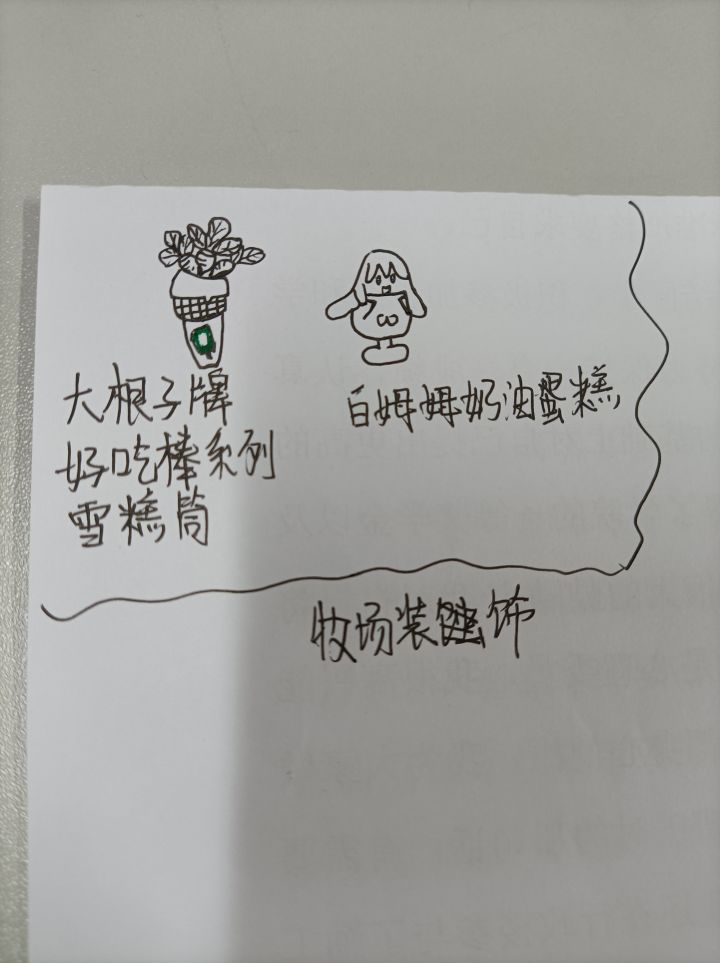 大根子牌
好吃棒系列
雪糕筒
白姆姆奶油蛋糕
牧场装饰